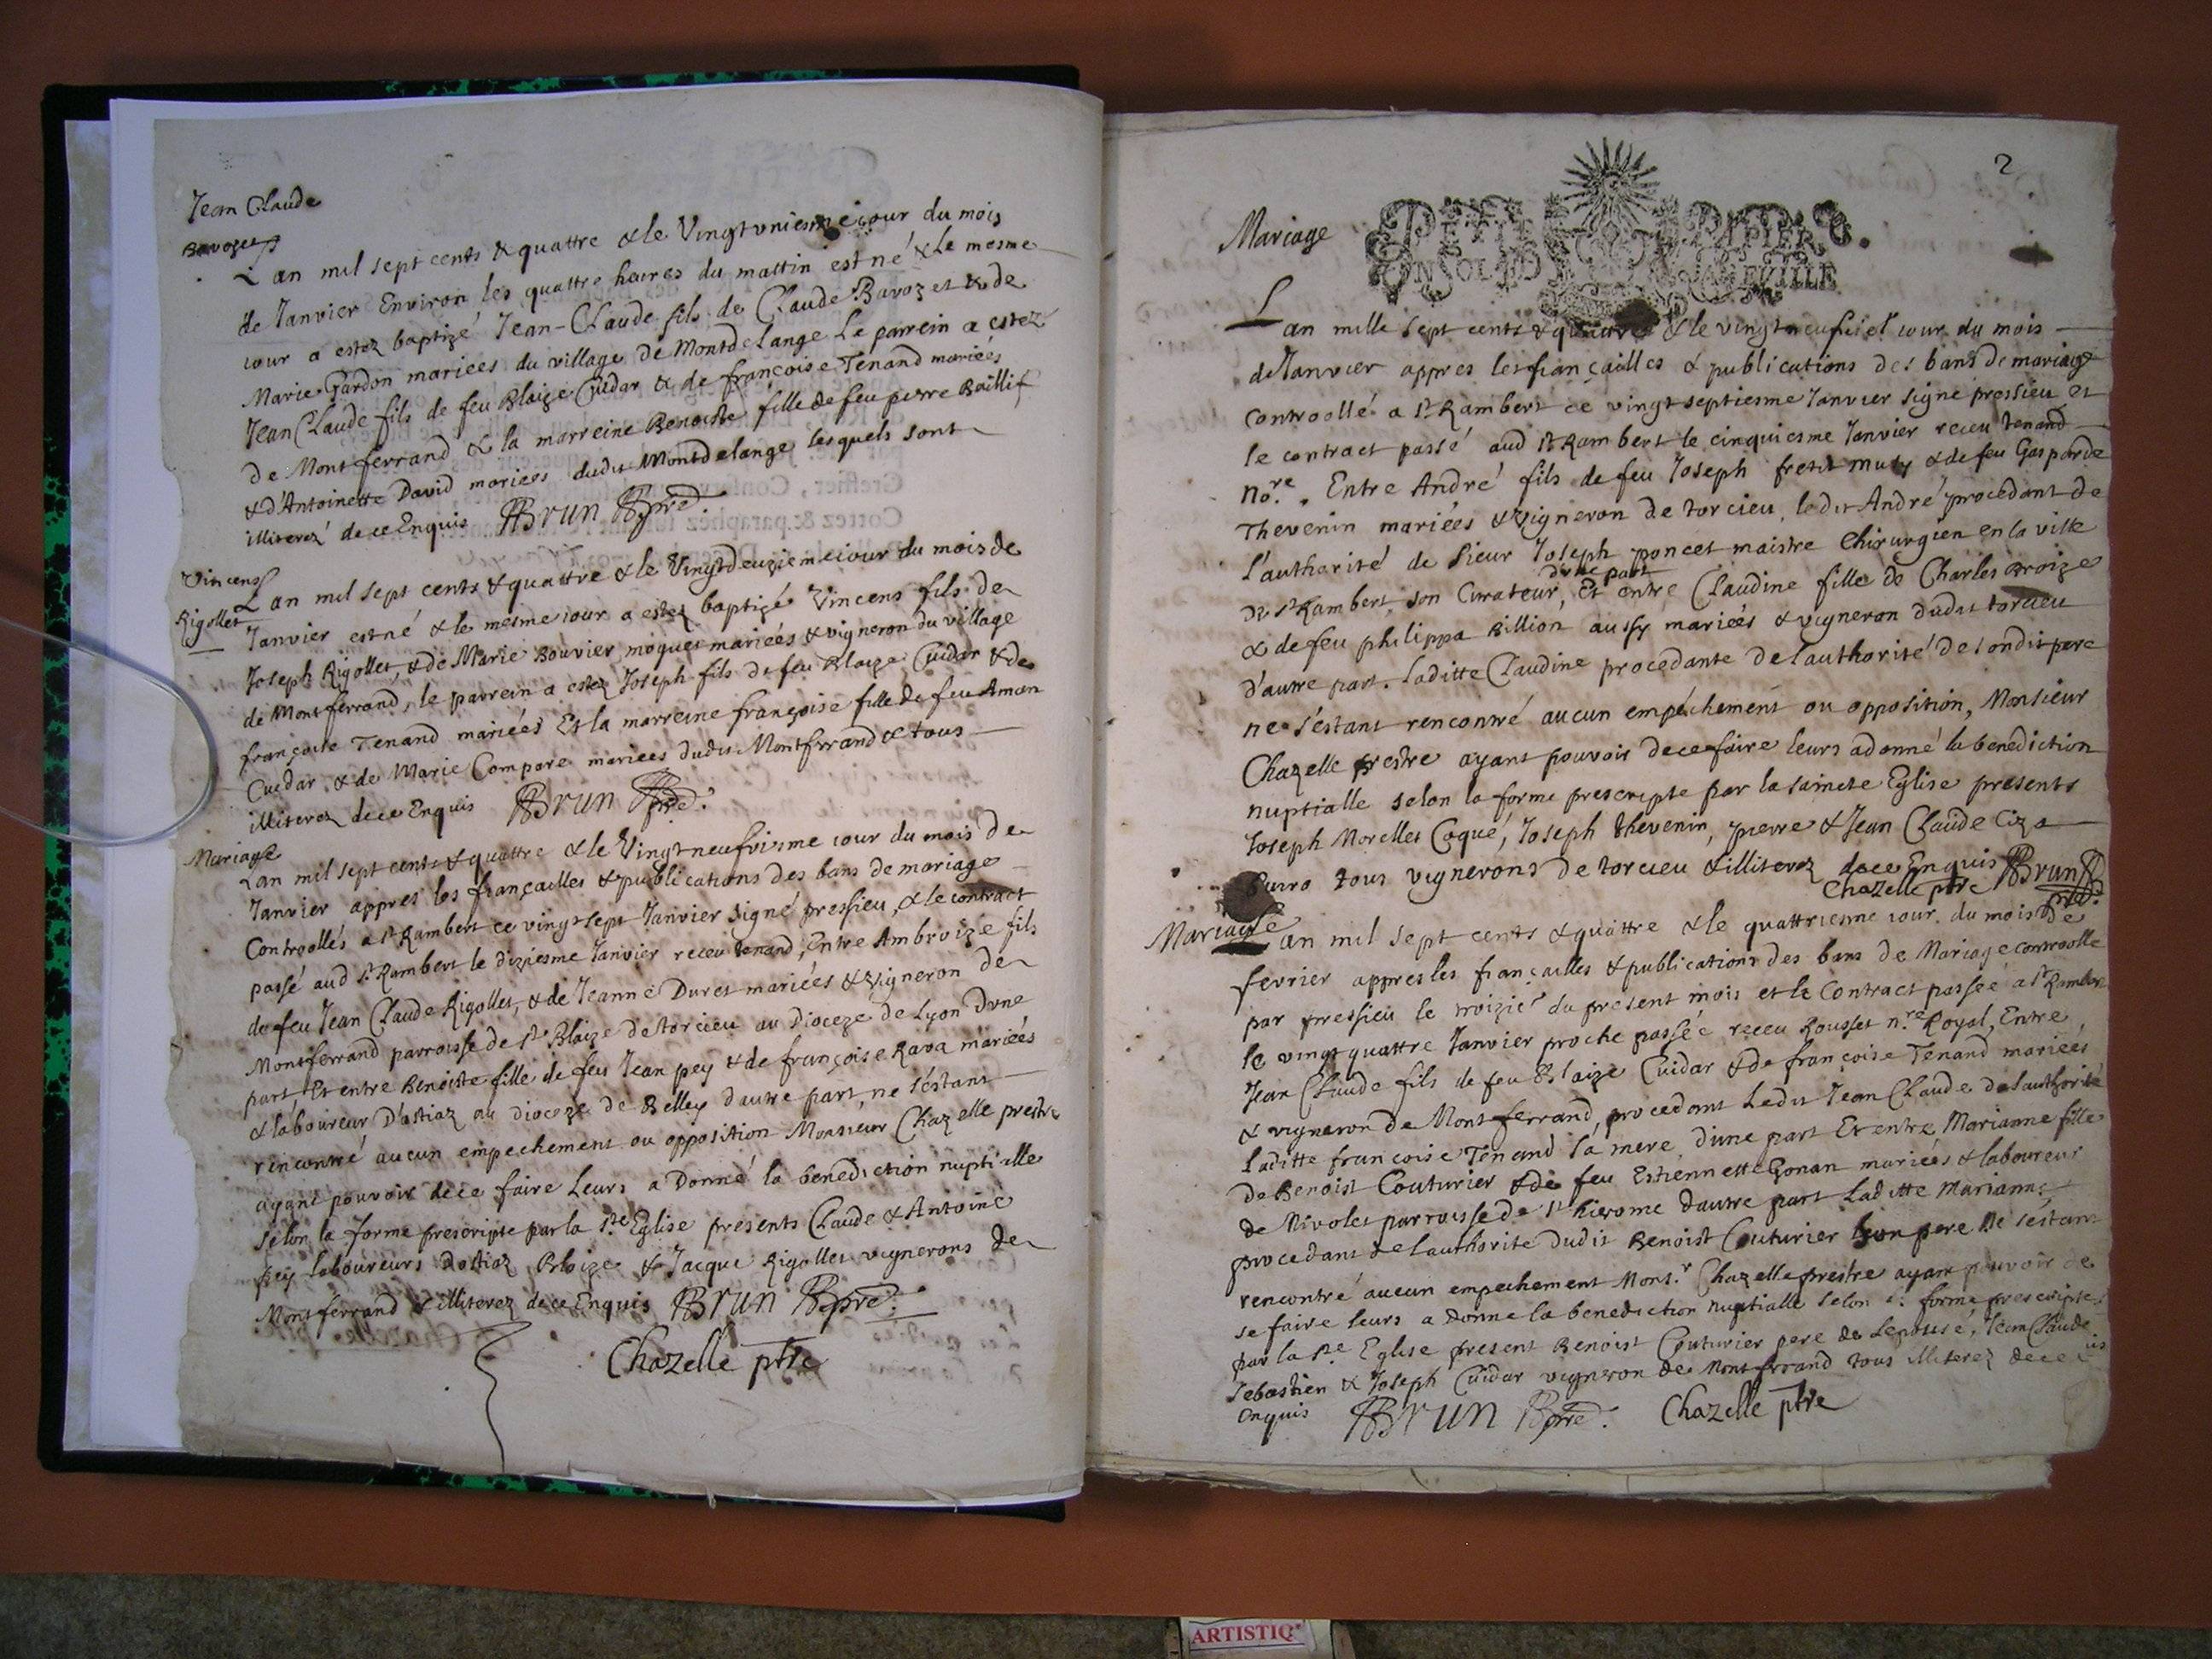 Jean Claude
Bavozet
L an mil sept cents & quattre & le Vingt vniesme iour du mois
de Janvier Environ les quattre heures du mattin est né & le mesme
iour a estez baptizé Jean-Claude fils de Claude Bavozet & de
Marie Gardon mariées du village de Montdelange Le parrein a estez
Jean Claude fils de feu Blaize Cuidar & de françoise Tenand mariées
de Montferrand & la marreine Benoiste fille de feu pierre Baillif
& d'Antoinette David mariées dudit Montdelange lesquels sont
illiterez de ce Enquis Brun
Vincens
Rigollet
L an mil sept cents & quattre & le Vingt deuziemeiour du mois de
Janvier est né & le mesme iour a estez baptizé Vincens fils de
Joseph Rigollet, & de Marie Bouvier moquet mariées & vigneron du village
de Montferrand, le parrein a estez Joseph fils de feu Blaize Cuidar & de
françoise Tenand mariées Et la marreine françoise fille de feu Aman
Cuidar & de Marie Compare mariees dudit Montferrand & tous
illiterez de ce Enquis Brun
Mariage
Lan mil sept cents & quattre & le Vingt neufviesme iour du mois de
Janvier appres les françailles & publications des bans de mariage
Controollés a St Rambert ce vingt sept Janvier signé pressieu, & le contract
passé aud St Rambert le diziesme Janvier receu tenand, Entre Ambroize fils
de feu Jean Claude Rigollet, & de Jeanne Duret mariées & vigneron de
Montferrand parroisse de St Blaize de torcieu au Dioceze de Lyon Dvne
part Et entre Benoiste fille de feu Jean pey & de françoise Rava mariées
& laboureur D'ostiaz au dioceze de Belley dautre part, ne s'éstant
rencontré aucun empechement ou opposition Monsieur Chazelle prestre
ayant pouvoir de ce faire Leurs a Donné la benediction nuptialle
selon la forme prescripte par la Ste Eglise presents Claude & Antoine
pey laboureurs Dostiaz, Blaize & Jacque Rigollet vignerons de
Montferrand & illiterez de ce Enquis Brun
Chazelle ptre
2
Mariage
PETIT PAPIER
L an mille sept cents & quattre & le vingt neufviel iour du mois
de Janvier appres les françailles & publications des bans de mariage
controollé a St Rambert ce vingt septiesme Janvier signé pressieu et
le contract passé aud St Rambert le cinquiesme Janvier receu tenand
No.re, Entre André fils de feu Joseph fretit Musy & de feu Gasparde
Thevenin mariées & vigneron de torcieu, ledit André procedant de
l'authorité de sieur Joseph poncet maistre Chirurgien en la ville
d'vne part
de St Rambert son Curateur, Et entre Claudine fille de Charles Broize
& de feu philippa Billion aussy mariées & vigneron dudit torcieu
d'autre part. laditte Claudine procedante de l'authorité de sondit pere
ne s'éstant rencontré aucun empéchement ou opposition, Monsieur
Chazelle prestre ayant pouvoir de ce faire leurs a donné la benediction
nuptialle selon la forme prescripte par la saincte Eglise presents
Joseph Morellet Coqué, Joseph thevenin, pierre & Jean Claude Ciza
tous vignerons de torcieu & illiterez de ce Enquis Brun
Chazelle ptre
Mariage
Lan mil sept cents & quattre & le quattriesme iour du mois de
fevrier appres les françailles & publications des bans de Mariage controolle
par pressieu le troizie du present mois et le Contract passée a St Rambert
le vingt quattre Janvier proche passée receu Rousset n.re Royal, Entre
Jean Claude fils de feu Blaize Cuidar & de françoise Tenand mariees
& vigneron de Montferrand, procedant Ledit Jean Claude de l'authorité
laditte francoise Tenand sa mere dvne part Et entre Marianne fille
de Benoist Couturier & de feu Estiennette Gonan mariées & laboureur
de Nivolet parroisse de St hierome dautre part laditte Marianne
procedant de l'authorite dudit Benoist Couturier son pere Ne séstant
rencontré aucun empechement Mons.r Chazelle prestre ayant pouvoir de
se faire leurs a donne la benediction nuptialle selon la forme prescripte
par la Ste Eglise present Benoist Couturier pere de Lepousé, Jean Claude
Sebastien & Joseph Cuidar vigneron de Montferrand tous illiterez de ce
Enquis Brun Chazelle ptre
ARTISTIQ